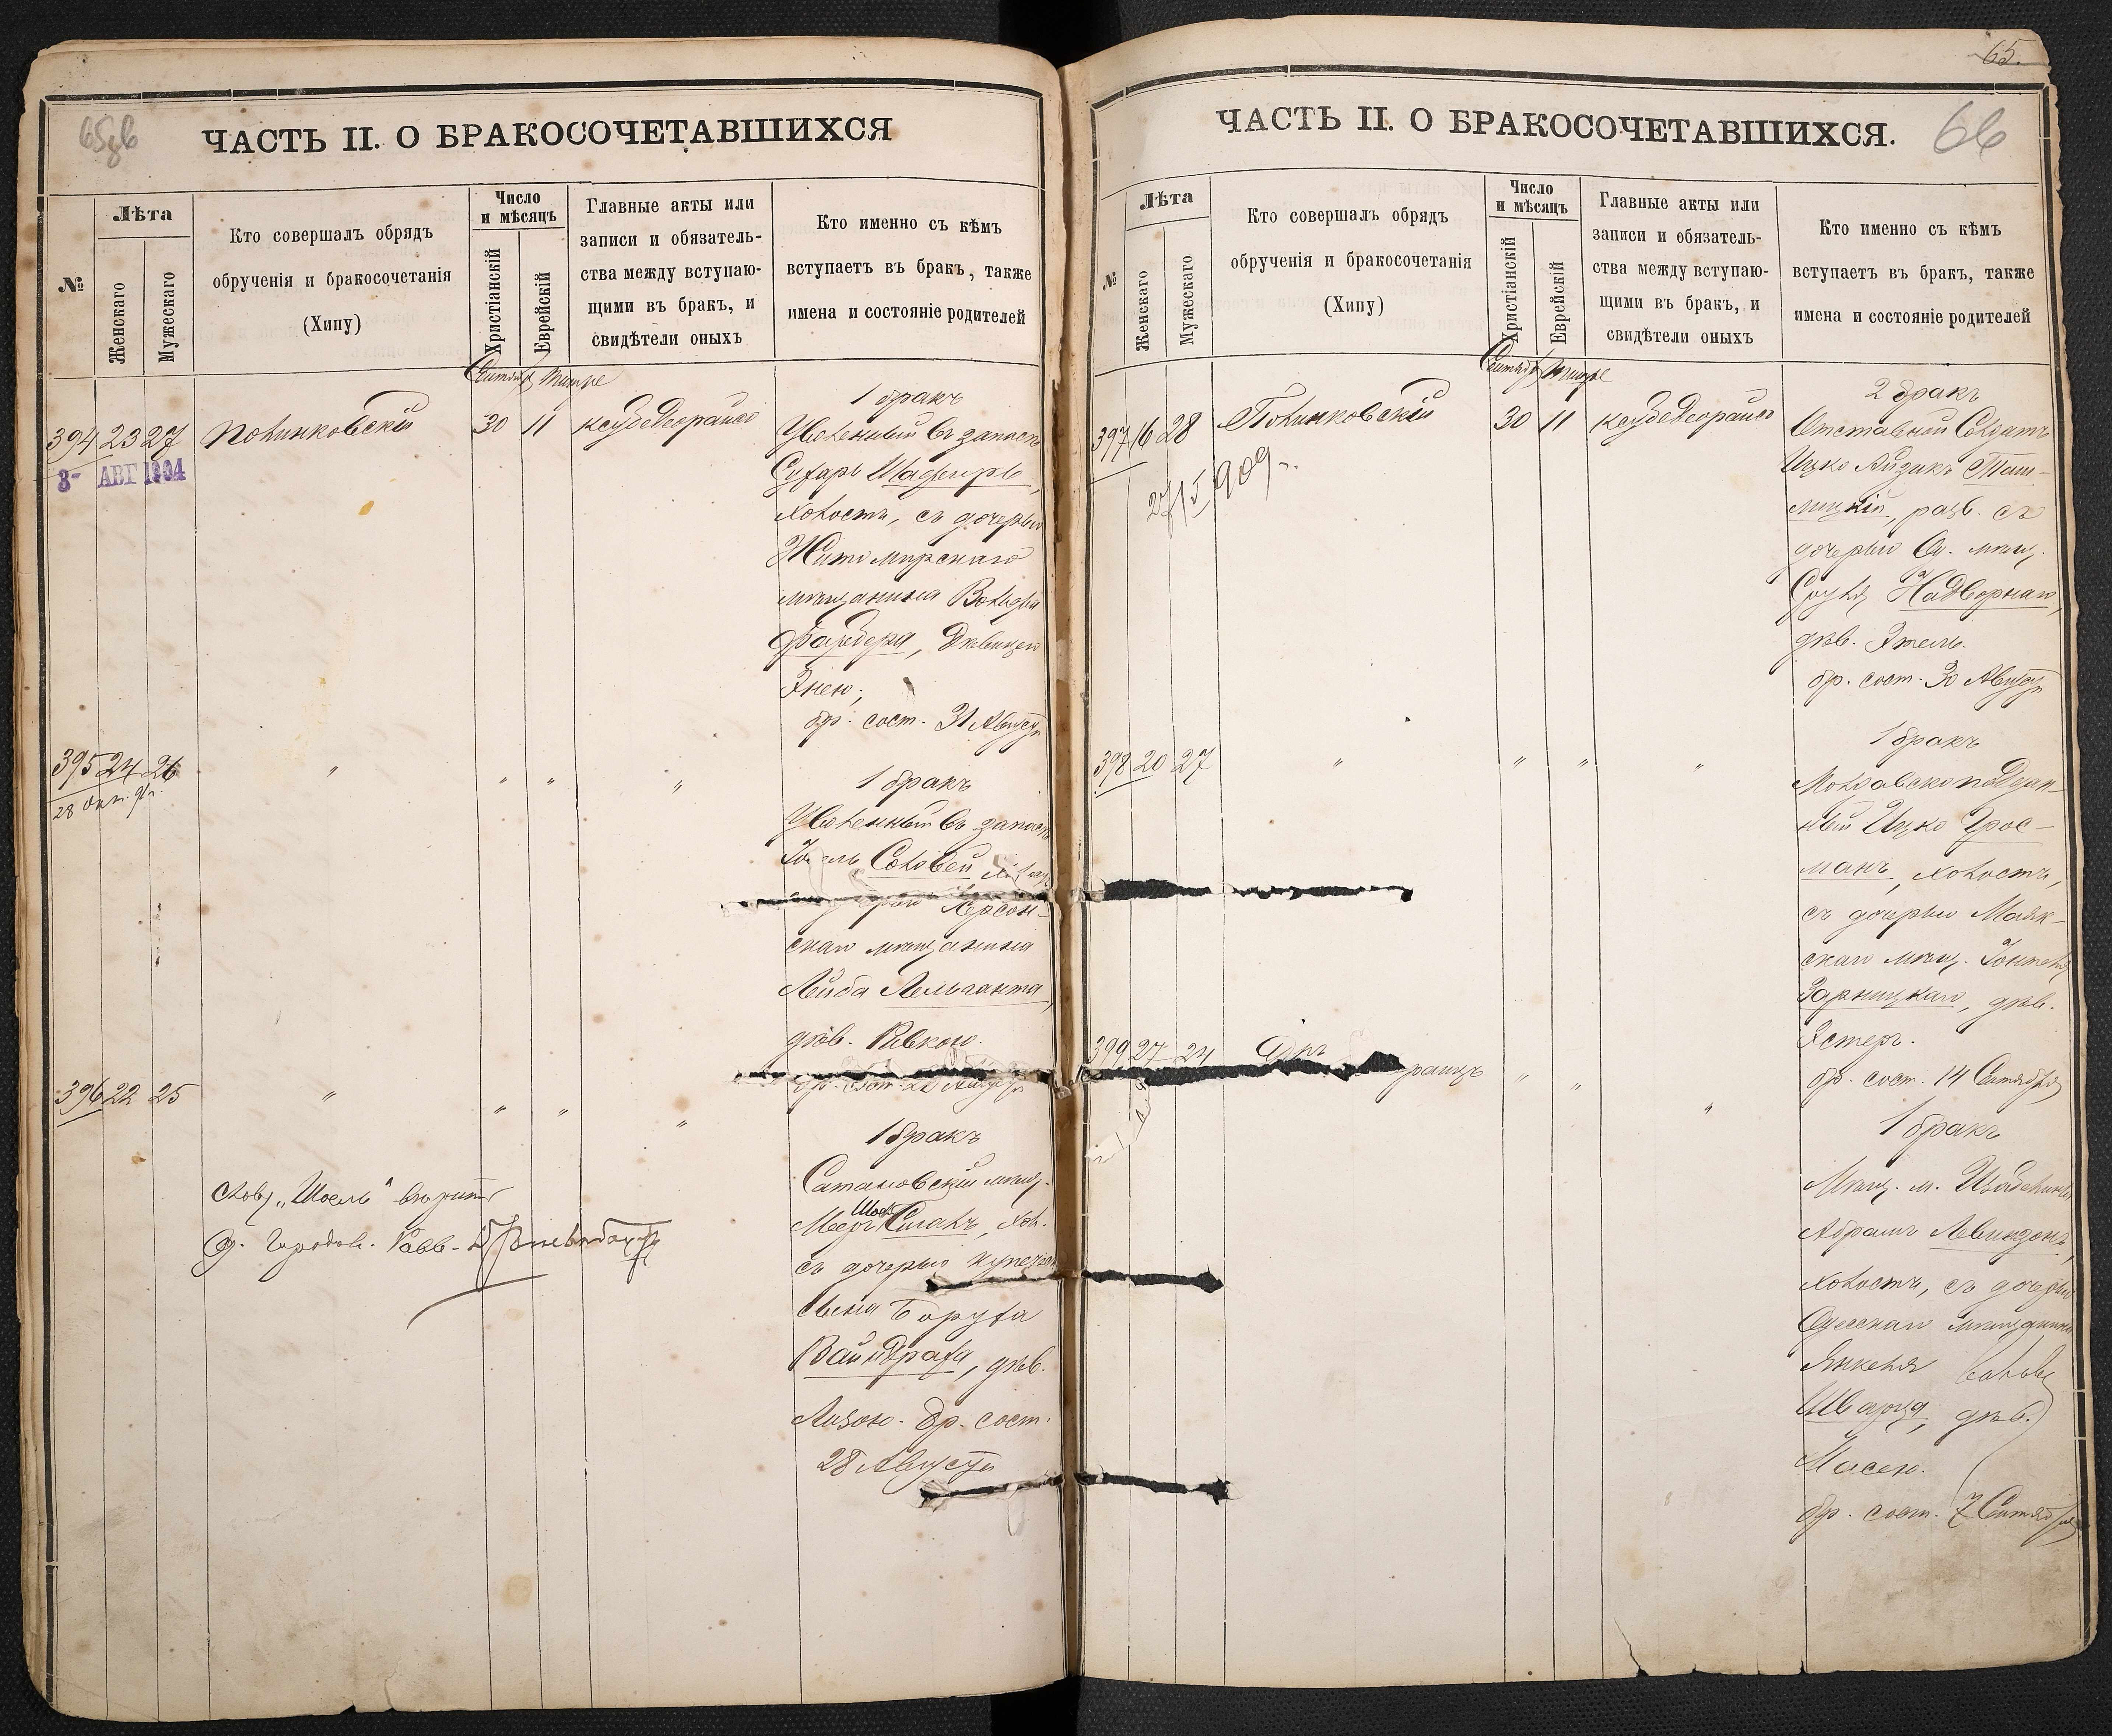 65 об
ЧАСТЬ II. О БРАКОСОЧЕТАВШИХСЯ
№
Лѣта
Женскаго
Мужескаго
Кто совершалъ обрядъ
обрученія и бракосочетанія
(Хипу)
Число
и мѣсяцъ
Христіанскій
Еврейскій
Главные акты или
записи и обязатель-
ства между вступаю-
щими въ бракъ, и
свидѣтели оныхъ
Кто именно съ кѣмъ
вступаетъ въ бракъ, также
имена и состояніе родителей
Сентяб Тишре
394 23 27 Полинковскій 30 11
8- АВГ 1904
1 бракъ
Уволенный въ запасъ
Сухарь Шафиръ,
холостъ, съ дочерью
Житомирскаго
мѣщанина Вольфа
Фарбера, Дѣвицею
Энею;
бр. сост. 31 Августа
395 24 26 " " " "
28 Окт.
1 бракъ
Уволенный въ запасъ
Соловей
Херсон-
скаго мѣщанина
Лейба Лельганта,
дѣв. Ривкою.
бр. сост. Августа
396 22 25 " " " "
1 бракъ
Сатановскій мѣщ.
Меер Шоель Сигалъ, хол.
съ дочерью купеческ
сына Боруха
Вайндраха, дѣв.
Лизою. бр. сост.
28 Августа
слову „Шоель" вѣрить
О. Городов. Равв.
65.
66
ЧАСТЬ II. О БРАКОСОЧЕТАВШИХСЯ.
№
Лѣта
Женскаго
Мужескаго
Кто совершалъ обрядъ
обрученія и бракосочетанія
(Хипу)
Число
и мѣсяцъ
Христіанскій
Еврейскій
Главные акты или
записи и обязатель-
ства между вступаю-
щими въ бракъ, и
свидѣтели оныхъ
Кто именно съ кѣмъ
вступаетъ въ бракъ, также
имена и состояніе родителей
Сентяб Тишре
397 16 28 Полинковскій 30 11
27/I 909
2 бракъ
Отставной Солдатъ
Ицко Айзикъ Таш-
лицкій, разв. съ
дочерью Од. мѣщ.
Надворнаго,
дѣв. Этель.
бр. сост. 30 Августа
398 20 27 " " " "
1 бракъ
Молдавскоподдан-
ный Ицко Грос-
манъ, холостъ,
съ дочерью Маяк-
скаго мѣщ.
Зарницкаго, дѣв.
Эстеръ.
бр. сост. 14 Сентября
399 27 24 " " "
1 бракъ
Мѣщ. м.
Абрамъ Левинзонъ,
холостъ, съ дочерью
Одесскаго мѣщанина
Янкеля
Шварца, дѣв.
Масею.
бр. сост. 7 Сентября